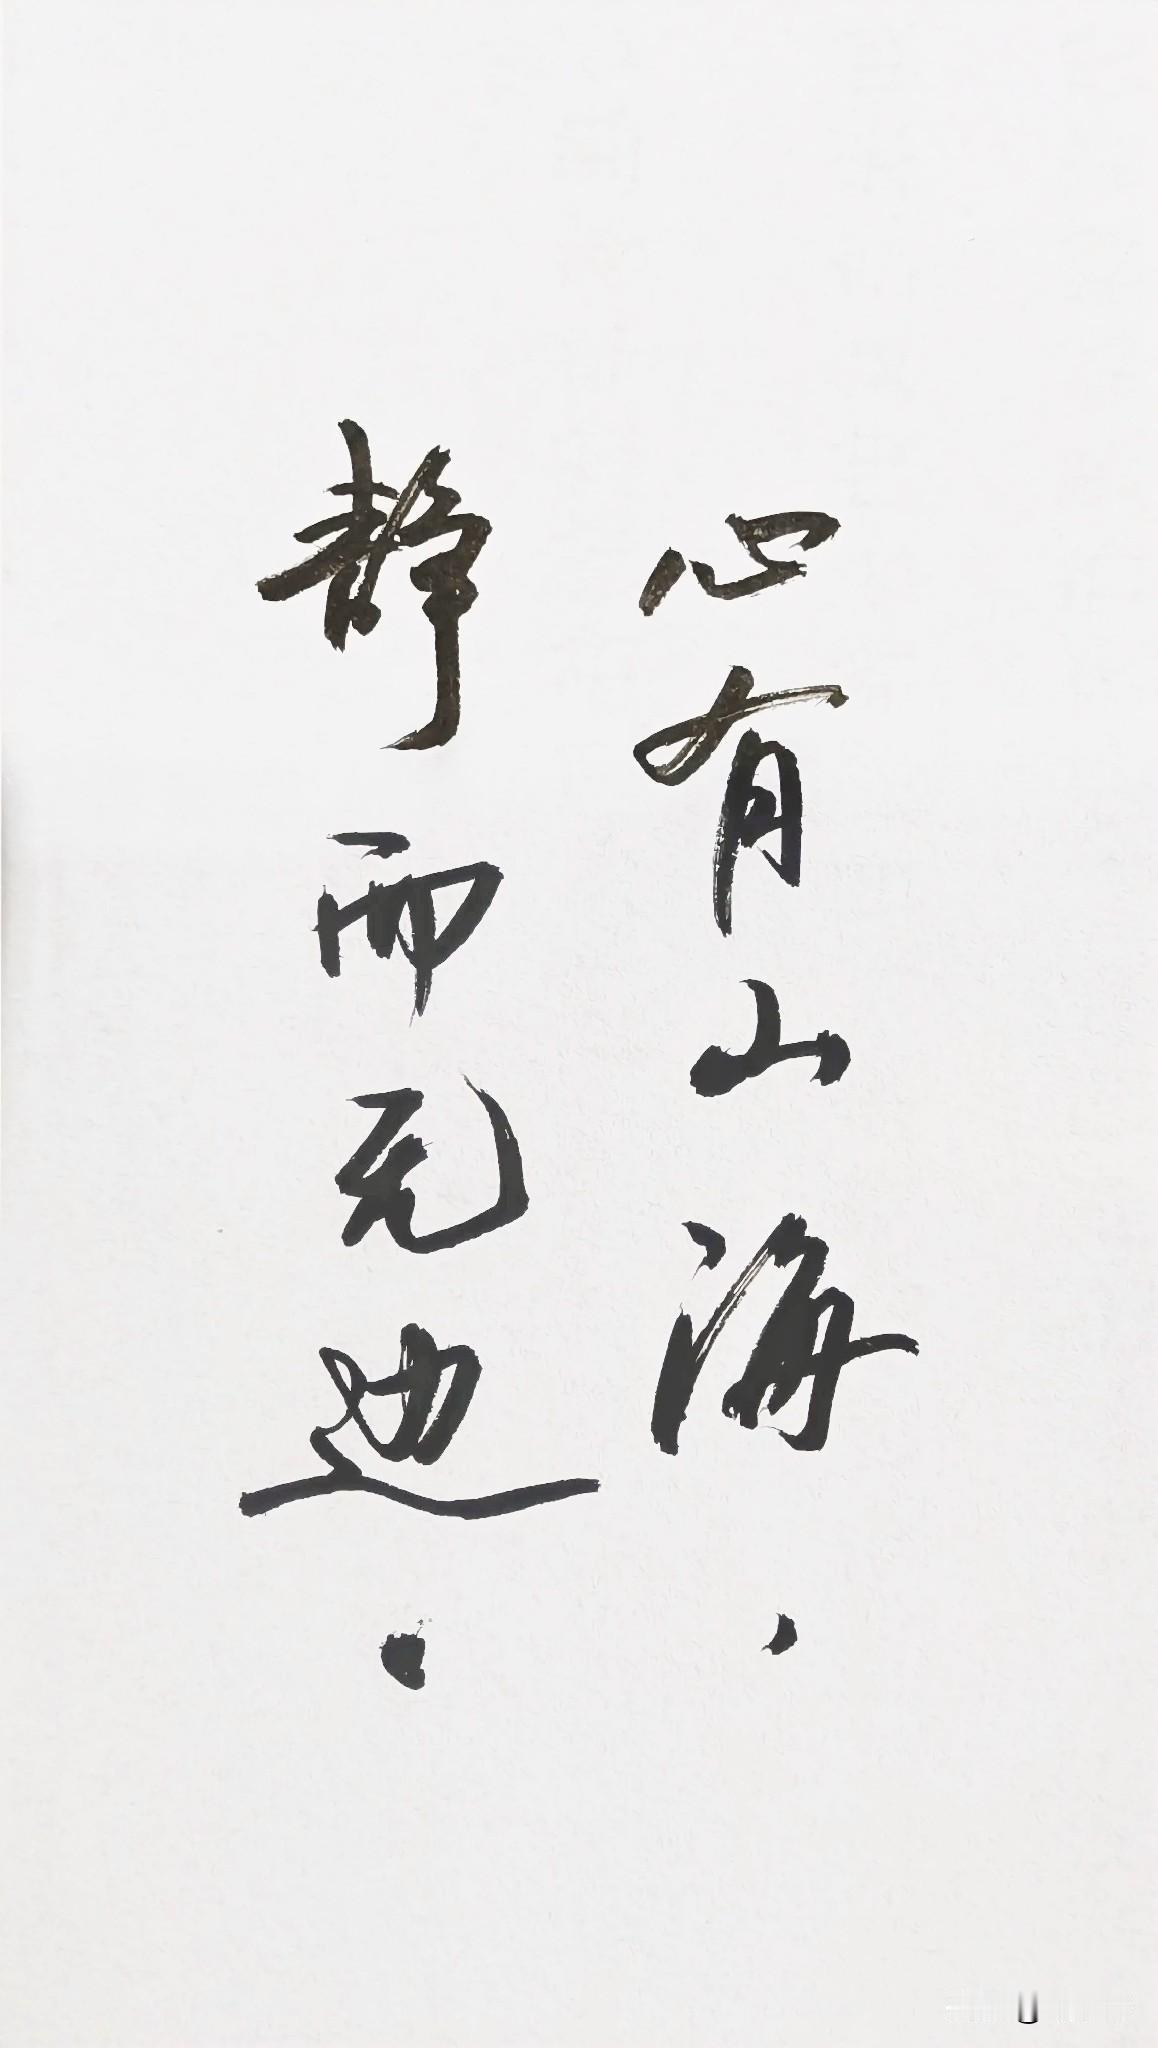 心有山海、
静而无边。